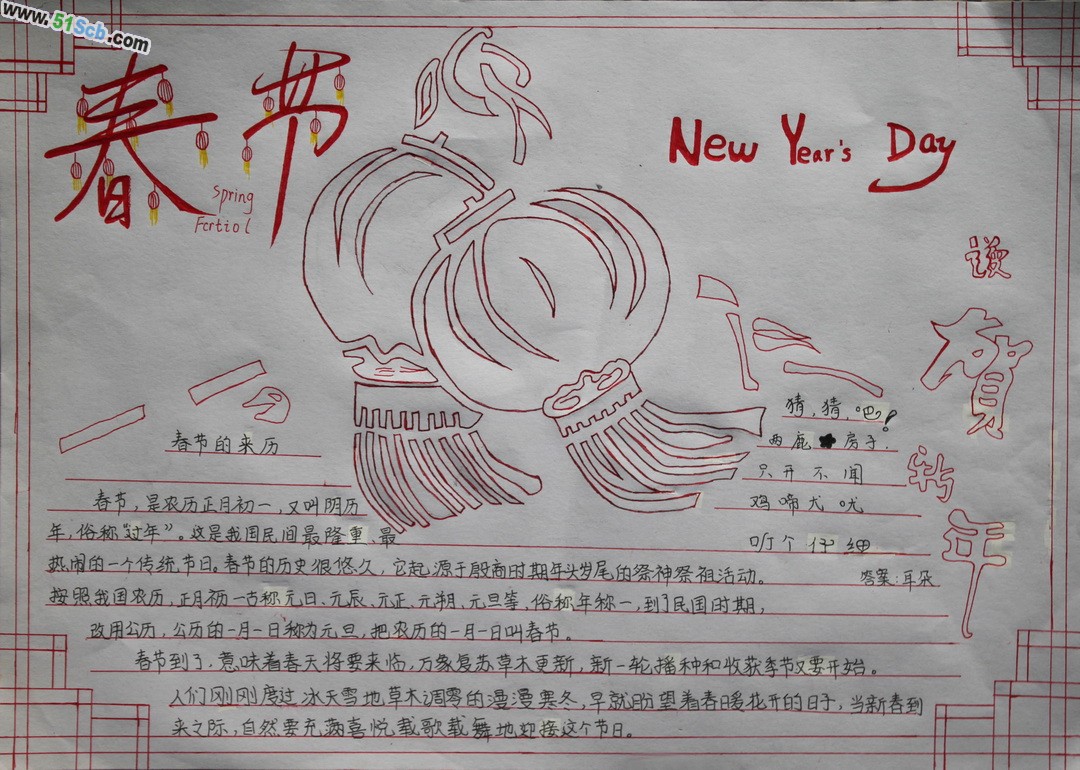 www.51Scb.com
春节
Spring
Fertiol
New Year's Day
谩
贺
新
年
猜,猜,吧!
两座房子.
只开不闻
鸡啼犬吠
叮个仔细
答案:耳朵
春节的来历
春节,是农历正月初一,又叫阴历
年,俗称“过年”。这是我国民间最隆重、最
热闹的一个传统节日。春节的历史很悠久,它起源于殷商时期年头岁尾的祭神祭祖活动。
按照我国农历,正月初一古称元日、元辰、元正、元朔、元旦等,俗称年称一,到了民国时期,
改用公历,公历的一月一日称为元旦,把农历的一月一日叫春节。
春节到了,意味着春天将要来临,万象复苏草木更新,新一轮播种和收获季节又要开始。
人们刚刚度过冰天雪地草木凋零的漫漫寒冬,早就盼望着春暖花开的日子,当新春到
来之际,自然要充满喜悦载歌载舞地迎接这个节日。